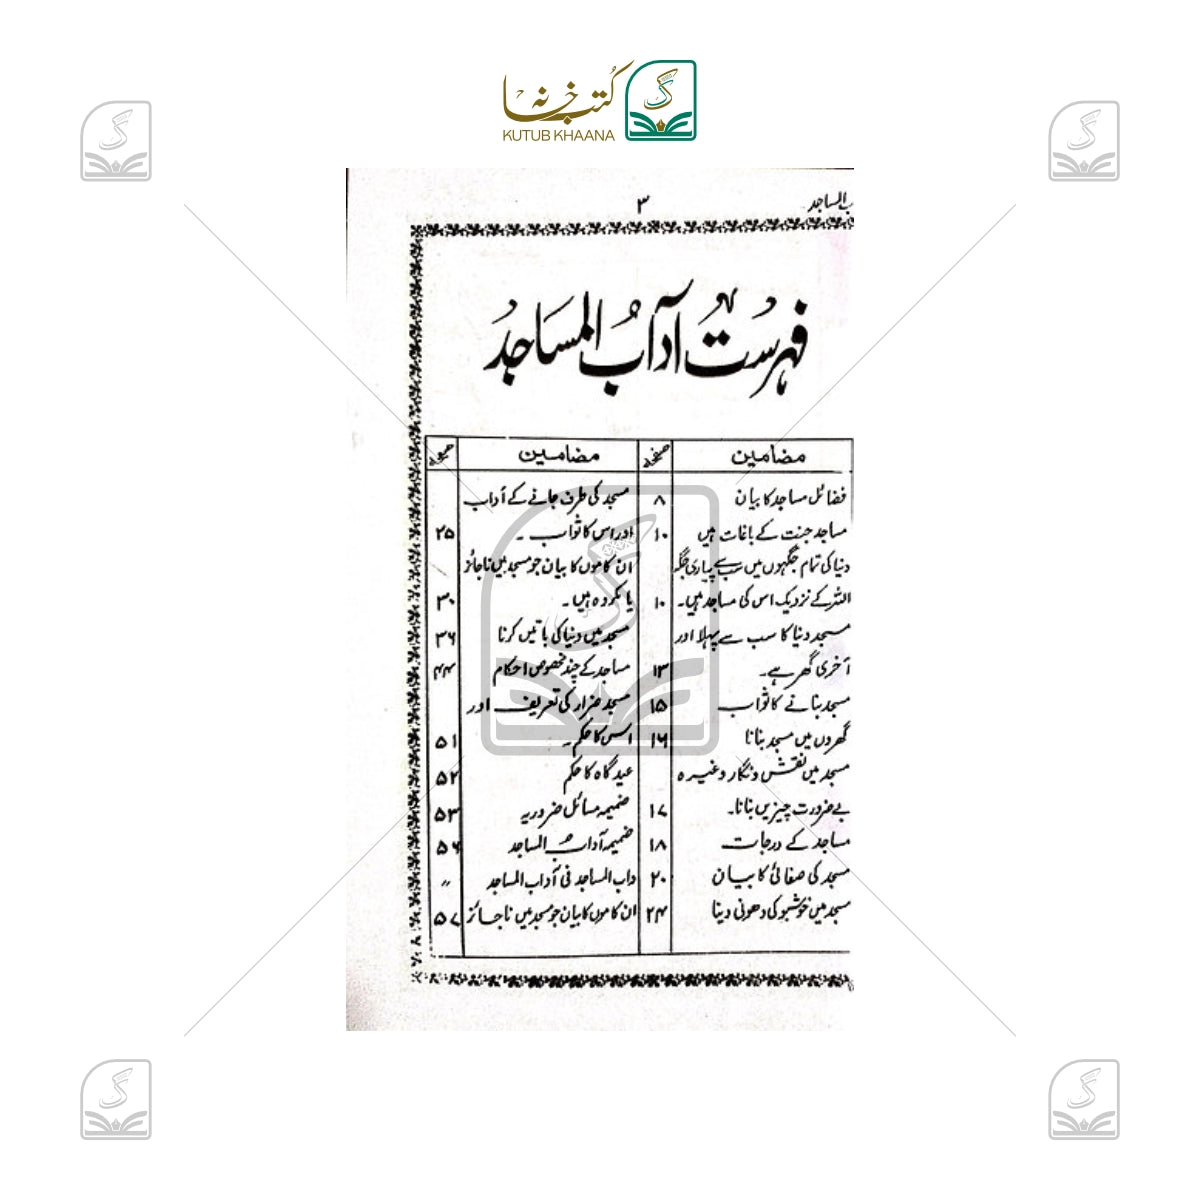 کتب خانہ
KUTUB KHAANA
ب المساجد
۳
فہرست آداب المساجد
مضامین
صفحہ
فضائل مساجد کا بیان
۸
مساجد جنت کے باغات ہیں
۱۰
دنیا کی تمام جگہوں میں سب سے پیاری جگہ
اللہ کے نزدیک اس کی مساجد ہیں۔
۱۰
مسجد دنیا کا سب سے پہلا اور
آخری گھر ہے۔
۱۳
مسجد بنانے کا ثواب
۱۵
گھروں میں مسجد بنانا
۱۶
مسجد میں نقش و نگار وغیرہ
بے ضرورت چیزیں بنانا۔
۱۷
مساجد کے درجات
۱۸
مسجد کی صفائی کا بیان
۲۰
مسجد میں خوشبو کی دھونی دینا
۲۴
مضامین
صفحہ
مسجد کی طرف جانے کے آداب
اور اس کا ثواب ۔
۲۵
ان کاموں کا بیان جو مسجد میں ناجائز
یا مکروہ ہیں۔
۳۰
مسجد میں دنیا کی باتیں کرنا
۳۶
مساجد کے چند مخصوص احکام
۴۴
مسجد ضرار کی تعریف اور
اس کا حکم ۔
۵۱
عیدگاہ کا حکم
۵۲
ضمیمہ مسائل ضروریہ
۵۳
ضمیمہ آداب المساجد
۵۶
داب المساجد فی آداب المساجد
״
ان کاموں کا بیان جو مسجد میں ناجائز
۵۷